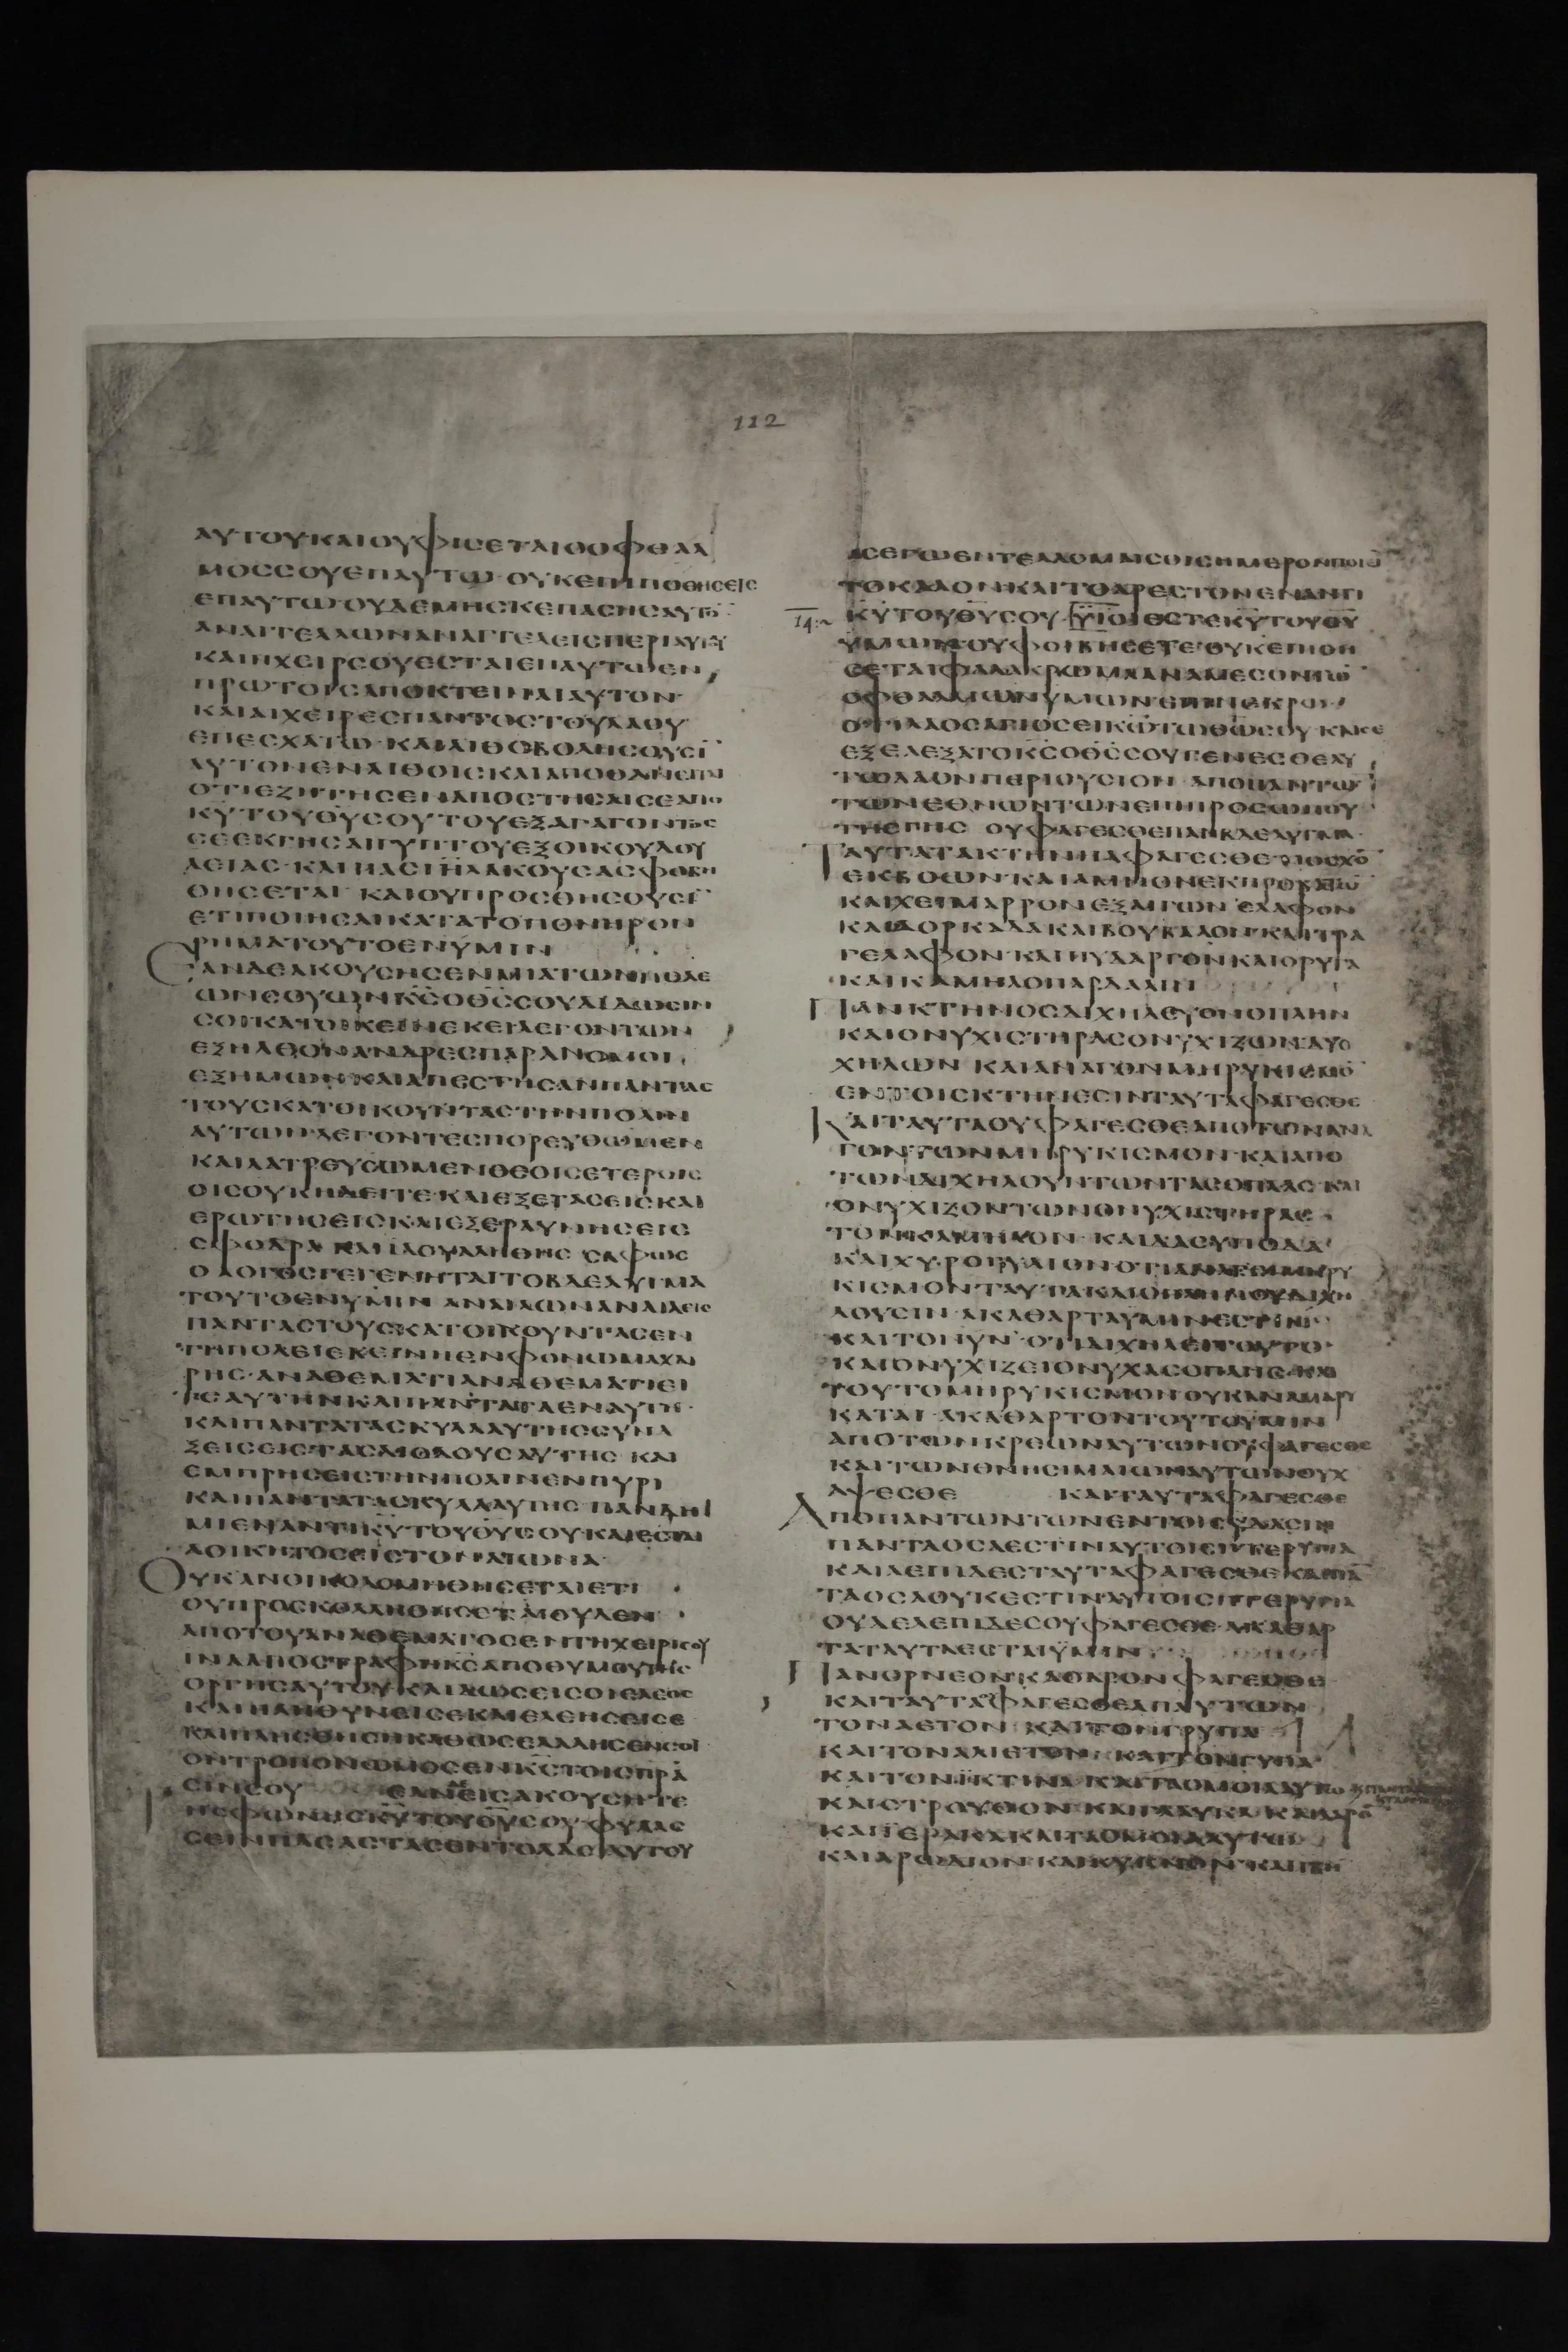 112
ΑΥΤΟΥΚΑΙΟΥΦΙСΕΤΑΙΟΟΦΘΑΛ
ΜΟССΟΥΕΠΑΥΤΩ·ΟΥΚΕΠΙΠΟΘΗСΕΙС
ΕΠΑΥΤΩΟΥΔΕΜΗСΚΕΠΑСΗСΑΥΤΟ̄
ΑΝΑΓΓΕΛΛΩΝΑΝΑΓΓΕΛΕΙСΠΕΡΙΑΥΤΟΥ
ΚΑΙΗΧΕΙΡСΟΥΕСΤΑΙΕΠΑΥΤΩΕΝ
ΠΡΩΤΟΙСΑΠΟΚΤΕΙΝΑΙΑΥΤΟΝ
ΚΑΙΑΙΧΕΙΡΕСΠΑΝΤΟСΤΟΥΛΑΟΥ
ΕΠΕСΧΑΤΩ·ΚΑΙΛΙΘΟΒΟΛΗСΟΥСῙ
ΑΥΤΟΝΕΝΛΙΘΟΙСΚΑΙΑΠΟΘΑΝΕΙΤΑΙ
ΟΤΙΕΖΗΤΗСΕΝΑΠΟСΤΗСΑΙСΕΑΠΟ
Κ̄ῩΤΟΥΘ̄Ῡ СΟΥΤΟΥΕΞΑΓΑΓΟΝΤΟС
СΕΕΚΓΗСΑΙΓΥΠΤΟΥΕΞΟΙΚΟΥΔΟΥ
ΛΕΙΑС·ΚΑΙΠΑСΙΗΛΑΚΟΥСΑСΦΟΒΗ
ΘΗСΕΤΑΙ ΚΑΙΟΥΠΡΟСΘΗСΟΥСῙ
ΕΤΙΠΟΙΗСΑΙΚΑΤΑΤΟΠΟΝΗΡΟΝ
ΡΗΜΑΤΟΥΤΟΕΝΥΜΙΝ
ΕΑΝΔΕΑΚΟΥСΗСΕΝΜΙΑΤΩΝΠΟΛΕ
ΩΝСΟΥΩΝΚ̄С̄ΟΘ̄С̄СΟΥΔΙΔΩСΙΝ
СΟΙΚΑΤΟΙΚΕΙΝΕΚΕΙΛΕΓΟΝΤΩΝ
ΕΞΗΛΘΟΝΑΝΔΡΕСΠΑΡΑΝΟΜΟΙ
ΕΞΗΜΩΝΚΑΙΑΠΕСΤΗСΑΝΠΑΝΤΑС
ΤΟΥСΚΑΤΟΙΚΟΥΝΤΑСΤΗΝΠΟΛΙΝ
ΑΥΤΩΝΛΕΓΟΝΤΕСΠΟΡΕΥΘΩΜΕΝ
ΚΑΙΛΑΤΡΕΥСΩΜΕΝΘΕΟΙСΕΤΕΡΟΙС
ΟΙСΟΥΚΗΔΕΙΤΕ·ΚΑΙΕΞΕΤΑСΕΙСΚΑΙ
ΕΡΩΤΗСΕΙСΚΑΙΕΞΕΡΑΥΝΗСΕΙС
СΦΟΔΡΑ ΚΑΙΙΔΟΥΑΛΗΘΗС СΑΦΩС
Ο ΛΟΓΟСΓΕΓΕΝΗΤΑΙΤΟΒΔΕΛΥΓΜΑ
ΤΟΥΤΟΕΝΥΜΙΝ ΑΝΑΙΡΩΝΑΝΑΙΛΕΙС
ΠΑΝΤΑСΤΟΥСΚΑΤΟΙΚΟΥΝΤΑСΕΝ
ΤΗΠΟΛΕΙΕΚΕΙΝΗΕΝΦΟΝΩΜΑΧΑΙ
ΡΗС·ΑΝΑΘΕΜΑΤΙΑΝΑΘΕΜΑΤΙΕΙ
ΤΕΑΥΤΗΝΚΑΙΠΑΝΤΑΤΑΕΝΑΥΤΗ·
ΚΑΙΠΑΝΤΑΤΑСΚΥΛΑΑΥΤΗССΥΝΑ
ΞΕΙСΕΙСΤΑСΔΙΟΔΟΥСΑΥΤΗС ΚΑΙ
ΕΜΠΡΗСΕΙСΤΗΝΠΟΛΙΝΕΝΠΥΡΙ
ΚΑΙΠΑΝΤΑΤΑСΚΥΛΑΑΥΤΗС ΠΑΝΔΗ
ΜΙΕΝΑΝΤΙΚ̄Ῡ ΤΟΥΘ̄Ῡ СΟΥ·ΚΑΙΕСΤΑΙ
ΑΟΙΚΗΤΟСΕΙСΤΟΝΑΙΩΝΑ
ΟΥΚΑΝΟΙΚΟΔΟΜΗΘΗСΕΤΑΙΕΤΙ
ΟΥΠΡΟСΚΟΛΛΗΘΗСΕΤΑΙΟΥΔΕΝ
ΑΠΟΤΟΥΑΝΑΘΕΜΑΤΟСΕΝΤΗΧΕΙΡΙСΟΥ
ΙΝΑΑΠΟСΤΡΑΦΗΚ̄С̄ΑΠΟΘΥΜΟΥΤΗС
ΟΡΓΗСΑΥΤΟΥ·ΚΑΙΔΩСΕΙСΟΙΕΛΕΟС
ΚΑΙΠΛΗΘΥΝΕΙСΕ
ΟΝΤΡΟΠΟΝΩΜΟСΕΝΚ̄С̄ΤΟΙСΠΡΑ
СΙΝСΟΥ ΕΑΝΕΙСΑΚΟΥСΗΤΕ
ΤΗСΦΩΝΗСΚ̄Ῡ ΤΟΥΘ̄Ῡ СΟΥ ΦΥΛΑС
СΕΙΝΠΑСΑСΤΑСΕΝΤΟΛΑСΑΥΤΟΥ
ΑСΕΓΩΕΝΤΕΛΛΟΜΑΙСΟΙСΗΜΕΡΟΝΠΟΙΕῙ
ΤΟΚΑΛΟΝΚΑΙΤΟΑΡΕСΤΟΝΕΝΑΝΤΙ
14:
Κ̄Ῡ ΤΟΥΘ̄Ῡ СΟΥ·ΥΙΟΙΕСΤΕΚ̄Ῡ ΤΟΥΘ̄Ῡ
ΥΜΩΝ
СΕΤΑΙΦΑΛΑΚΡΩΜΑΑΝΑΜΕСΟΝΤΩ̄
ΟΦΘΑΛΜΩΝΥΜΩΝΕΠΙΝΕΚΡΩ
ΟΤΙΛΑΟСΑΓΙΟСΕΙΚ̄Ω̄ΤΩΘ̄Ω̄СΟΥ·ΚΑΙСΕ
ΕΞΕΛΕΞΑΤΟΚ̄С̄ΟΘ̄С̄СΟΥΓΕΝΕСΘΕΑΥ
ΤΩΛΑΟΝΠΕΡΙΟΥСΙΟΝ ΑΠΟΠΑΝΤΩ̄
ΤΩΝΕΘΝΩΝΤΩΝΕΠΙΠΡΟСΩΠΟΥ
ΤΗСΓΗС ΟΥΦΑΓΕСΘΕΠΑΝΒΔΕΛΥΓΜΑ·
ΤΑΥΤΑΤΑΚΤΗΝΗΑΦΑΓΕСΘΕ·ΜΟСΧΟ̄
ΕΚΒΟΩΝ·ΚΑΙΑΜΝΟΝΕΚΠΡΟΒΑΤΩ̄
ΚΑΙΧΕΙΜΑΡΡΟΝΕΞΑΙΓΩΝ ΕΛΑΦΟΝ
ΚΑΙΔΟΡΚΑΔΑΚΑΙΒΟΥΒΑΛΟΝ·ΚΑΙΤΡΑ
ΓΕΛΑΦΟΝ·ΚΑΙΠΥΔΑΡΓΟΝΚΑΙΟΡΥΓΑ
ΚΑΙΚΑΜΗΛΟΠΑΡΔΑΛΙΝ
ΠΑΝΚΤΗΝΟСΔΙΧΗΛΕΥΟΝΟΠΛΗΝ
ΚΑΙΟΝΥΧΙСΤΗΡΑСΟΝΥΧΙΖΩΝΔΥΟ
ΧΗΛΩΝ ΚΑΙΑΝΑΓΟΝΜΗΡΥΚΙСΜΟ̄
ΕΝΤΟΙСΚΤΗΝΕСΙΝΤΑΥΤΑΦΑΓΕСΘΕ
ΚΑΙΤΑΥΤΑΟΥΦΑΓΕСΘΕΑΠΟΤΩΝΑΝΑ
ΓΟΝΤΩΝΜΗΡΥΚΙСΜΟΝ·ΚΑΙΑΠΟ
ΤΩΝΔΙΧΗΛΟΥΝΤΩΝΤΑСΟΠΛΑС·ΚΑΙ
ΟΝΥΧΙΖΟΝΤΩΝΟΝΥΧΙСΤΗΡΑС
ΤΟΝΚΑΜΗΛΟΝ ΚΑΙΔΑСΥΠΟΔΑ
ΚΑΙΧΥΡΟΓΡΥΛΙΟΝ
ΚΙСΜΟΝ·ΤΑΥΤΑΚΑΙΟΠΛΗΝΟΥΔΙΧΗ
ΛΟΥСΙΝ·ΑΚΑΘΑΡΤΑΥΜΙΝΕСΤΙΝ
ΚΑΙΤΟΝΥΝ ΟΤΙΔΙΧΗΛΕΙΤΟΥΤΟ
ΚΑΙΟΝΥΧΙΖΕΙΟΝΥΧΑСΟΠΛΗС·ΚΑΙ
ΤΟΥΤΟΜΗΡΥΚΙСΜΟΝΟΥΚΑΝΑΜΑΡΥ
ΚΑΤΑΙ·ΑΚΑΘΑΡΤΟΝΤΟΥΤΟΥΜΙΝ
ΑΠΟΤΩΝΚΡΕΩΝΑΥΤΩΝΟΥΦΑΓΕСΘΕ
ΚΑΙΤΩΝΘΝΗСΙΜΑΙΩΝΑΥΤΩΝΟΥΧ
ΑΨΕСΘΕ ΚΑΙΤΑΥΤΑΦΑΓΕСΘΕ
ΑΠΟΠΑΝΤΩΝΤΩΝΕΝΤΟΙСΥΔΑСΙΝ
ΠΑΝΤΑΟСΑΕСΤΙΝΑΥΤΟΙСΠΤΕΡΥΓΙΑ
ΚΑΙΛΕΠΙΔΕСΤΑΥΤΑΦΑΓΕСΘΕΚΑΙΠᾹ
ΤΑΟСΑΟΥΚΕСΤΙΝΑΥΤΟΙСΠΤΕΡΥΓΙΑ
ΟΥΔΕΛΕΠΙΔΕСΟΥΦΑΓΕСΘΕ·ΑΚΑΘΑΡ
ΤΑΤΑΥΤΑΕСΤΑΙΥΜΙΝ
ΠΑΝΟΡΝΕΟΝΚΑΘΑΡΟΝΦΑΓΕСΘΕ
ΚΑΙΤΑΥΤΑΟΥΦΑΓΕСΘΕΑΠΑΥΤΩΝ
ΤΟΝΑΕΤΟΝ ΚΑΙΤΟΝΓΡΥΠΑ
ΚΑΙΤΟΝΑΛΙΕΤΟΝ ΚΑΙΤΟΝΓΥΠΑ
ΚΑΙΤΟΝΙΚΤΙΝΑ·ΚΑΙΤΑΟΜΟΙΑΑΥΤΩ
ΚΑΙСΤΡΟΥΘΟΝ·ΚΑΙΓΛΑΥΚΑ·ΚΑΙΛΑΡΟ̄
ΚΑΙΙΕΡΑΚΑΚΑΙΤΑΟΜΟΙΑΑΥΤΩ
ΚΑΙΑΡΩΔΙΟΝ·ΚΑΙΚΥΚΝΟΝ·ΚΑΙΙΒΙΝ